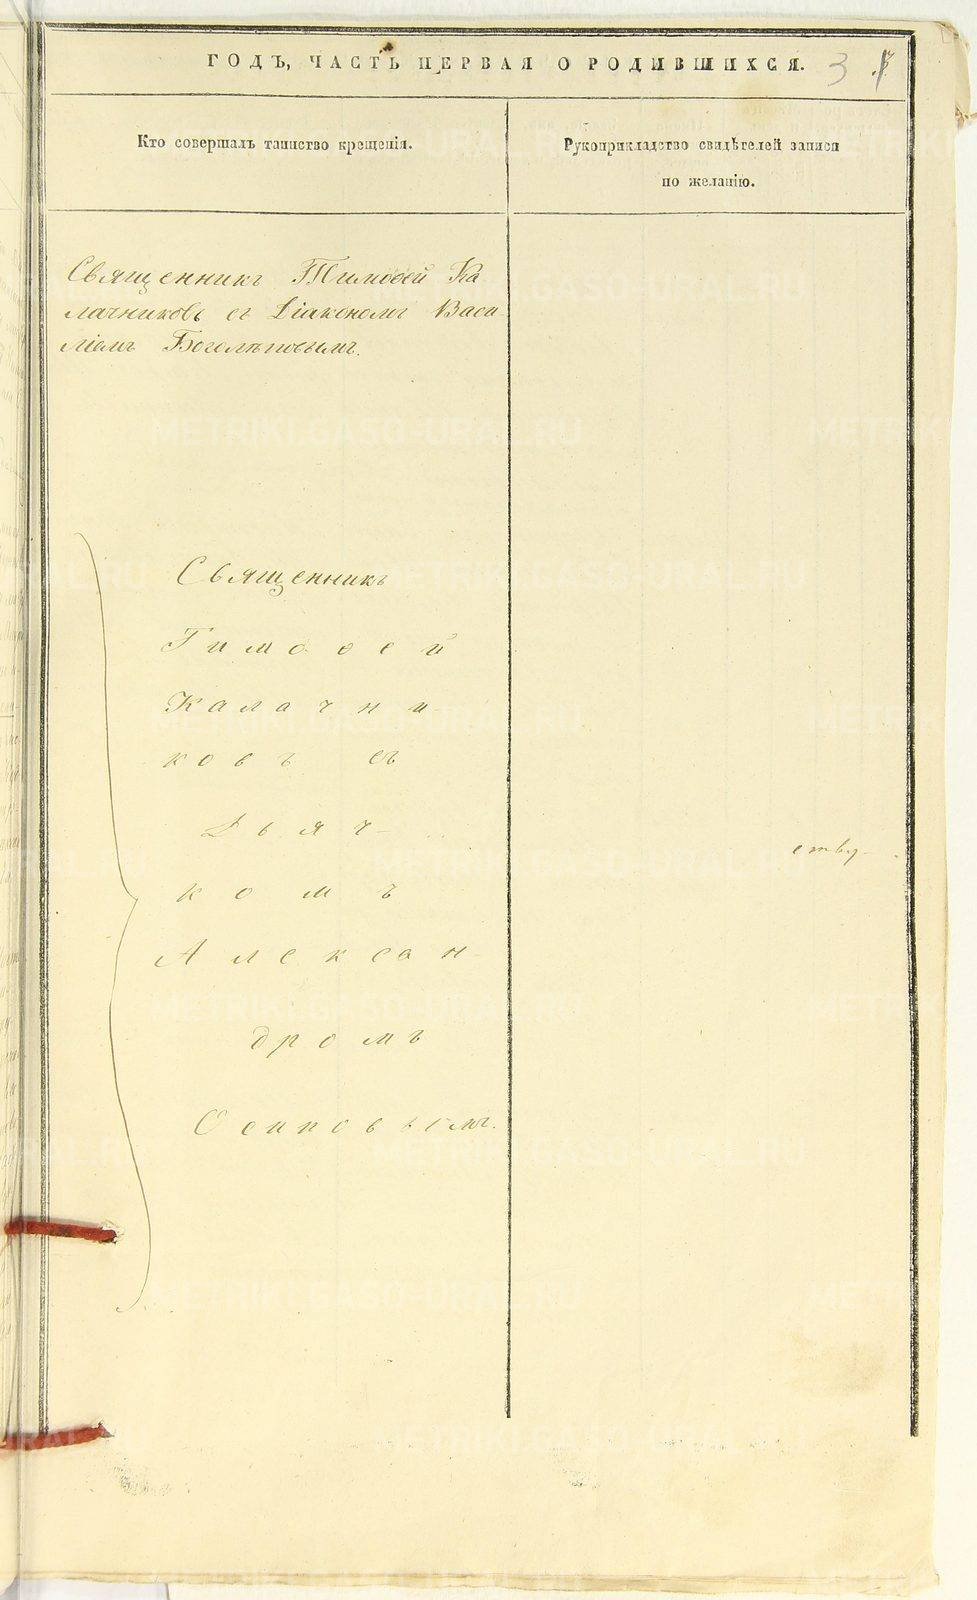 ГОДЪ, ЧАСТЬ ПЕРВАЯ О РОДИВШИХСЯ. 3
Кто совершалъ таинство крещенія.
Рукоприкладство свидѣтелей записи
по желанію.
Священникъ Тимоѳей Ка
лачниковъ съ Діакономъ Васи
ліемъ Боголѣповымъ.
Священникъ
Тимоѳей
Калачни-
ковъ съ
Дьяч-
комъ
Алексан-
дромъ
Осиповымъ.
ству-
METRIKI.GASO-URAL.RU